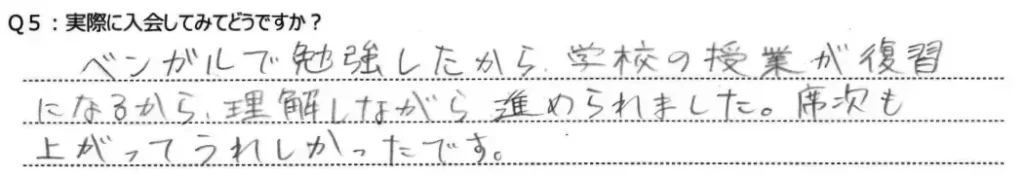 Q5：実際に入会してみてどうですか？
ベンガルで勉強したから、学校の授業が復習
になるから、理解しながら進められました。席次も
上がってうれしかったです。